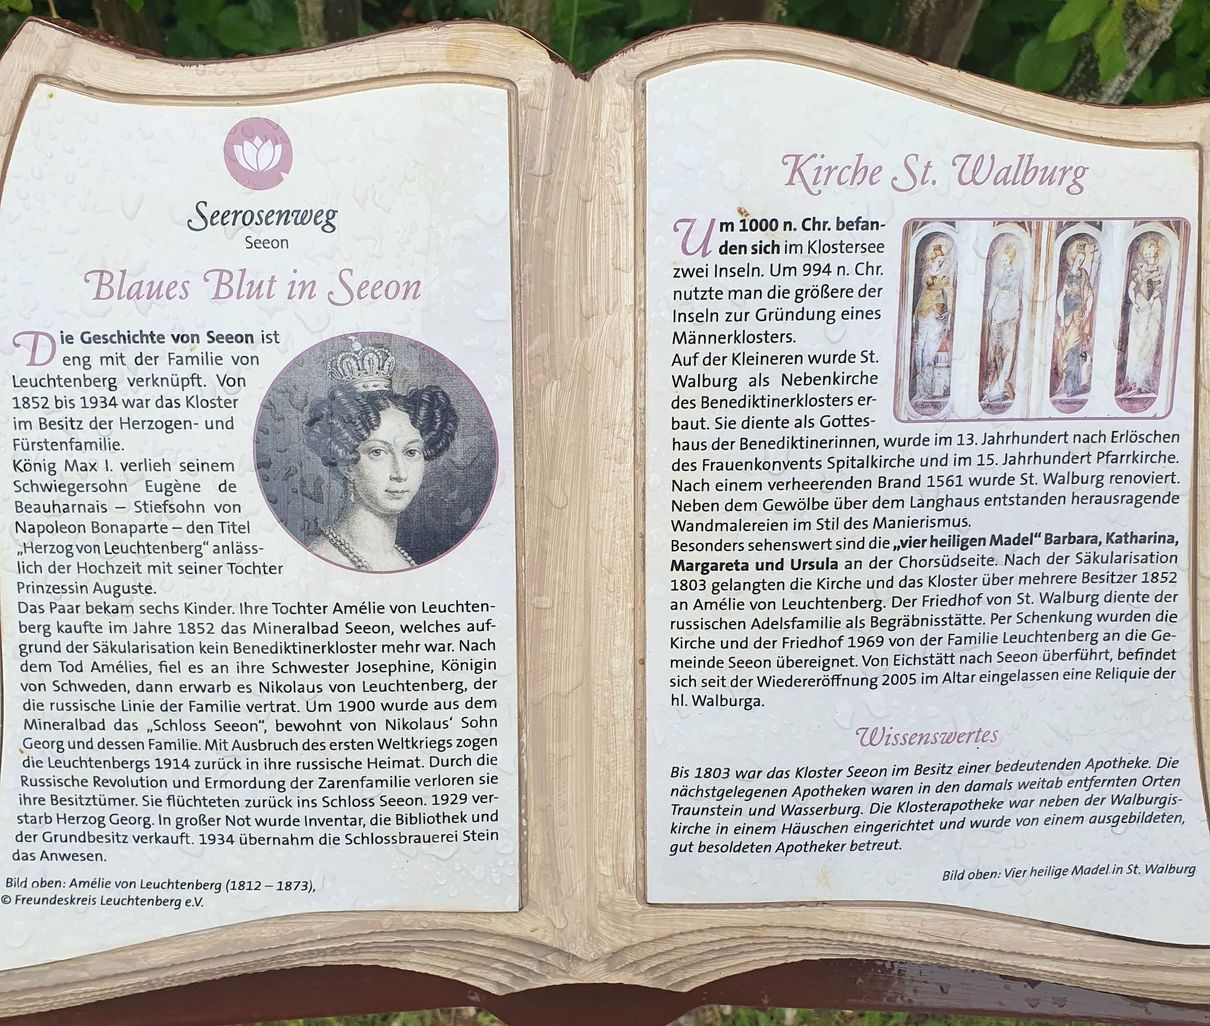 Seerosenweg
Seeon
Blaues Blut in Seeon
Die Geschichte von Seeon ist
eng mit der Familie von
Leuchtenberg verknüpft. Von
1852 bis 1934 war das Kloster
im Besitz der Herzogen- und
Fürstenfamilie.
König Max I. verlieh seinem
Schwiegersohn Eugène de
Beauharnais – Stiefsohn von
Napoleon Bonaparte – den Titel
„Herzog von Leuchtenberg“ anläss-
lich der Hochzeit mit seiner Tochter
Prinzessin Auguste.
Das Paar bekam sechs Kinder. Ihre Tochter Amélie von Leuchten-
berg kaufte im Jahre 1852 das Mineralbad Seeon, welches auf-
grund der Säkularisation kein Benediktinerkloster mehr war. Nach
dem Tod Amélies, fiel es an ihre Schwester Josephine, Königin
von Schweden, dann erwarb es Nikolaus von Leuchtenberg, der
die russische Linie der Familie vertrat. Um 1900 wurde aus dem
Mineralbad das „Schloss Seeon“, bewohnt von Nikolaus‘ Sohn
Georg und dessen Familie. Mit Ausbruch des ersten Weltkriegs zogen
die Leuchtenbergs 1914 zurück in ihre russische Heimat. Durch die
Russische Revolution und Ermordung der Zarenfamilie verloren sie
ihre Besitztümer. Sie flüchteten zurück ins Schloss Seeon. 1929 ver-
starb Herzog Georg. In großer Not wurde Inventar, die Bibliothek und
der Grundbesitz verkauft. 1934 übernahm die Schlossbrauerei Stein
das Anwesen.
Bild oben: Amélie von Leuchtenberg (1812 – 1873),
© Freundeskreis Leuchtenberg e.V.
Kirche St. Walburg
Um 1000 n. Chr. befan-
den sich im Klostersee
zwei Inseln. Um 994 n. Chr.
nutzte man die größere der
Inseln zur Gründung eines
Männerklosters.
Auf der Kleineren wurde St.
Walburg als Nebenkirche
des Benediktinerklosters er-
baut. Sie diente als Gottes-
haus der Benediktinerinnen, wurde im 13. Jahrhundert nach Erlöschen
des Frauenkonvents Spitalkirche und im 15. Jahrhundert Pfarrkirche.
Nach einem verheerenden Brand 1561 wurde St. Walburg renoviert.
Neben dem Gewölbe über dem Langhaus entstanden herausragende
Wandmalereien im Stil des Manierismus.
Besonders sehenswert sind die „vier heiligen Madel“ Barbara, Katharina,
Margareta und Ursula an der Chorsüdseite. Nach der Säkularisation
1803 gelangten die Kirche und das Kloster über mehrere Besitzer 1852
an Amélie von Leuchtenberg. Der Friedhof von St. Walburg diente der
russischen Adelsfamilie als Begräbnisstätte. Per Schenkung wurden die
Kirche und der Friedhof 1969 von der Familie Leuchtenberg an die Ge-
meinde Seeon übereignet. Von Eichstätt nach Seeon überführt, befindet
sich seit der Wiedereröffnung 2005 im Altar eingelassen eine Reliquie der
hl. Walburga.
Wissenswertes
Bis 1803 war das Kloster Seeon im Besitz einer bedeutenden Apotheke. Die
nächstgelegenen Apotheken waren in den damals weitab entfernten Orten
Traunstein und Wasserburg. Die Klosterapotheke war neben der Walburgis-
kirche in einem Häuschen eingerichtet und wurde von einem ausgebildeten,
gut besoldeten Apotheker betreut.
Bild oben: Vier heilige Madel in St. Walburg